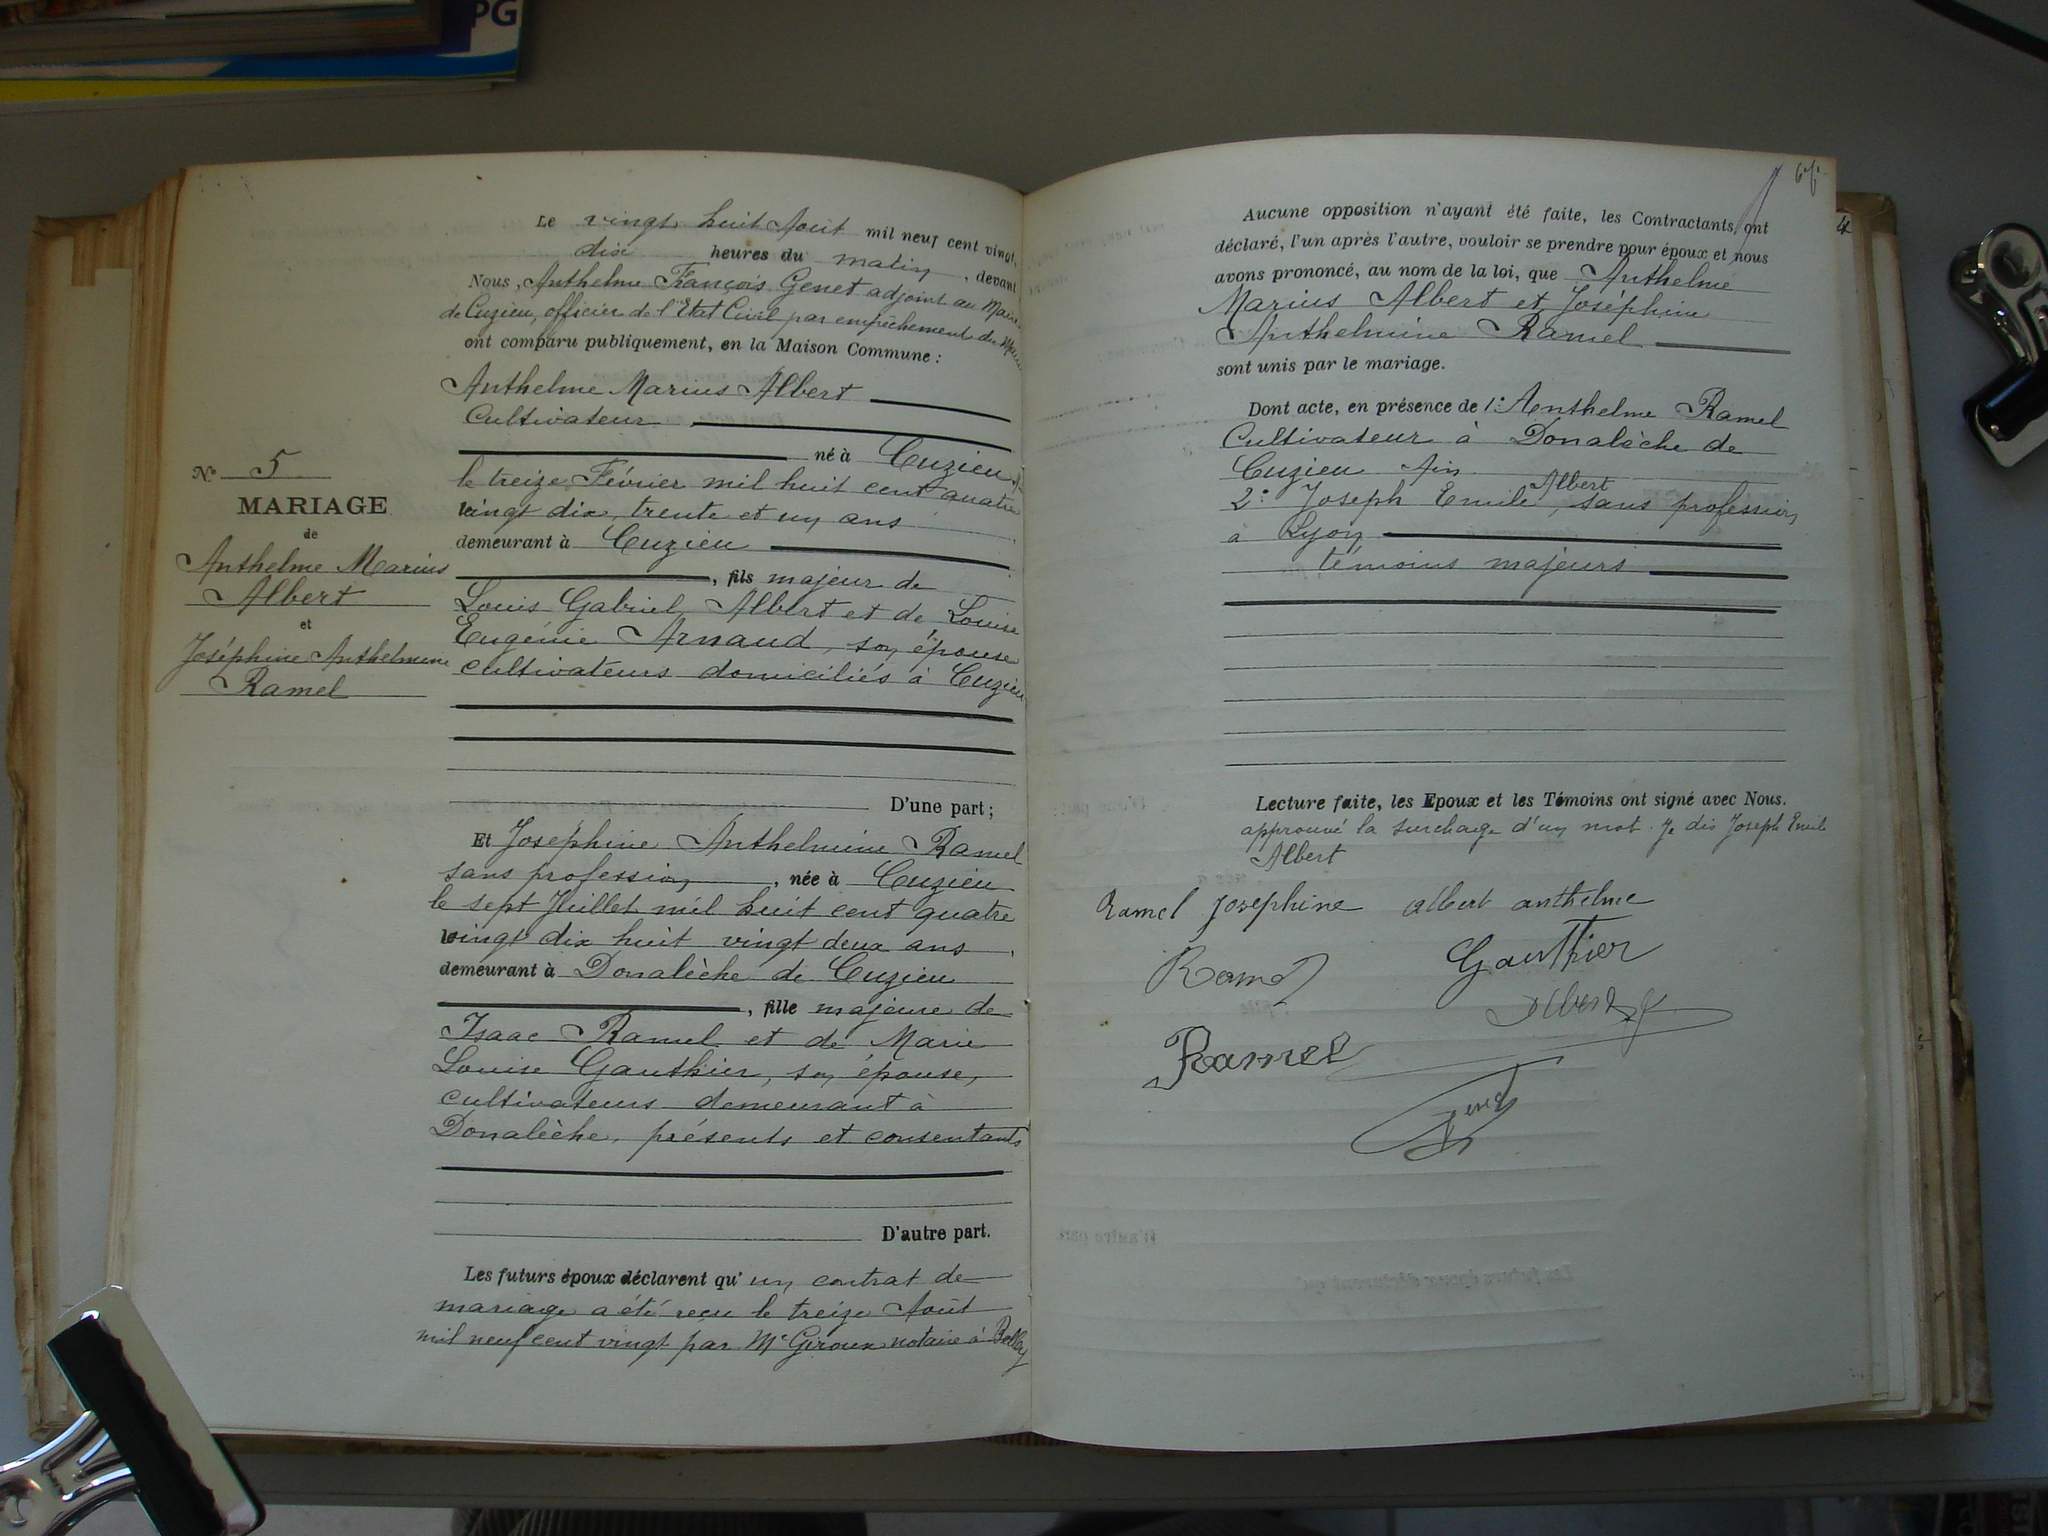 PG
Le vingt huit Aout mil neuf cent vingt,
dix heures du matin, devant
Nous, Anthelme François Genet adjoint au Maire
de Cuzieu, officier de l'Etat Civil par empêchement du Maire
ont comparu publiquement, en la Maison Commune :
Anthelme Marius Albert
Cultivateur
né à Cuzieu
le treize Février mil huit cent quatre
vingt dix, trente et un ans
demeurant à Cuzieu
, fils majeur de
Louis Gabriel Albert et de Louise
Eugénie Arnaud, son épouse
cultivateurs domiciliés à Cuzieu
D'une part ;
Et Joséphine Anthelmine Ramel
sans profession, née à Cuzieu
le sept Juillet mil huit cent quatre
vingt dix huit vingt deux ans
demeurant à Donalèche de Cuzieu
, fille majeure de
Isaac Ramel et de Marie
Louise Gauthier, son épouse,
cultivateurs demeurant à
Donalèche, présents et consentants
D'autre part.
Les futurs époux déclarent qu'un contrat de
mariage a été reçu le treize Août
mil neuf cent vingt par Me Giroux notaire à Belley
No 5
MARIAGE
de
Anthelme Marius
Albert
et
Joséphine Anthelmine
Ramel
Aucune opposition n'ayant été faite, les Contractants ont
déclaré, l'un après l'autre, vouloir se prendre pour époux et nous
avons prononcé, au nom de la loi, que Anthelme
Marius Albert et Joséphine
Anthelmine Ramel
sont unis par le mariage.
Dont acte, en présence de 1: Anthelme Ramel
Cultivateur à Donalèche de
Cuzieu Ain
2: Joseph Emile Albert, sans profession
à Lyon
témoins majeurs
Lecture faite, les Epoux et les Témoins ont signé avec Nous.
approuvé la surchage d'un mot. Je dis Joseph Emile
Albert
Ramel Josephine albert anthelme
Ramel Gauthier
Albert
Ramel
Genet